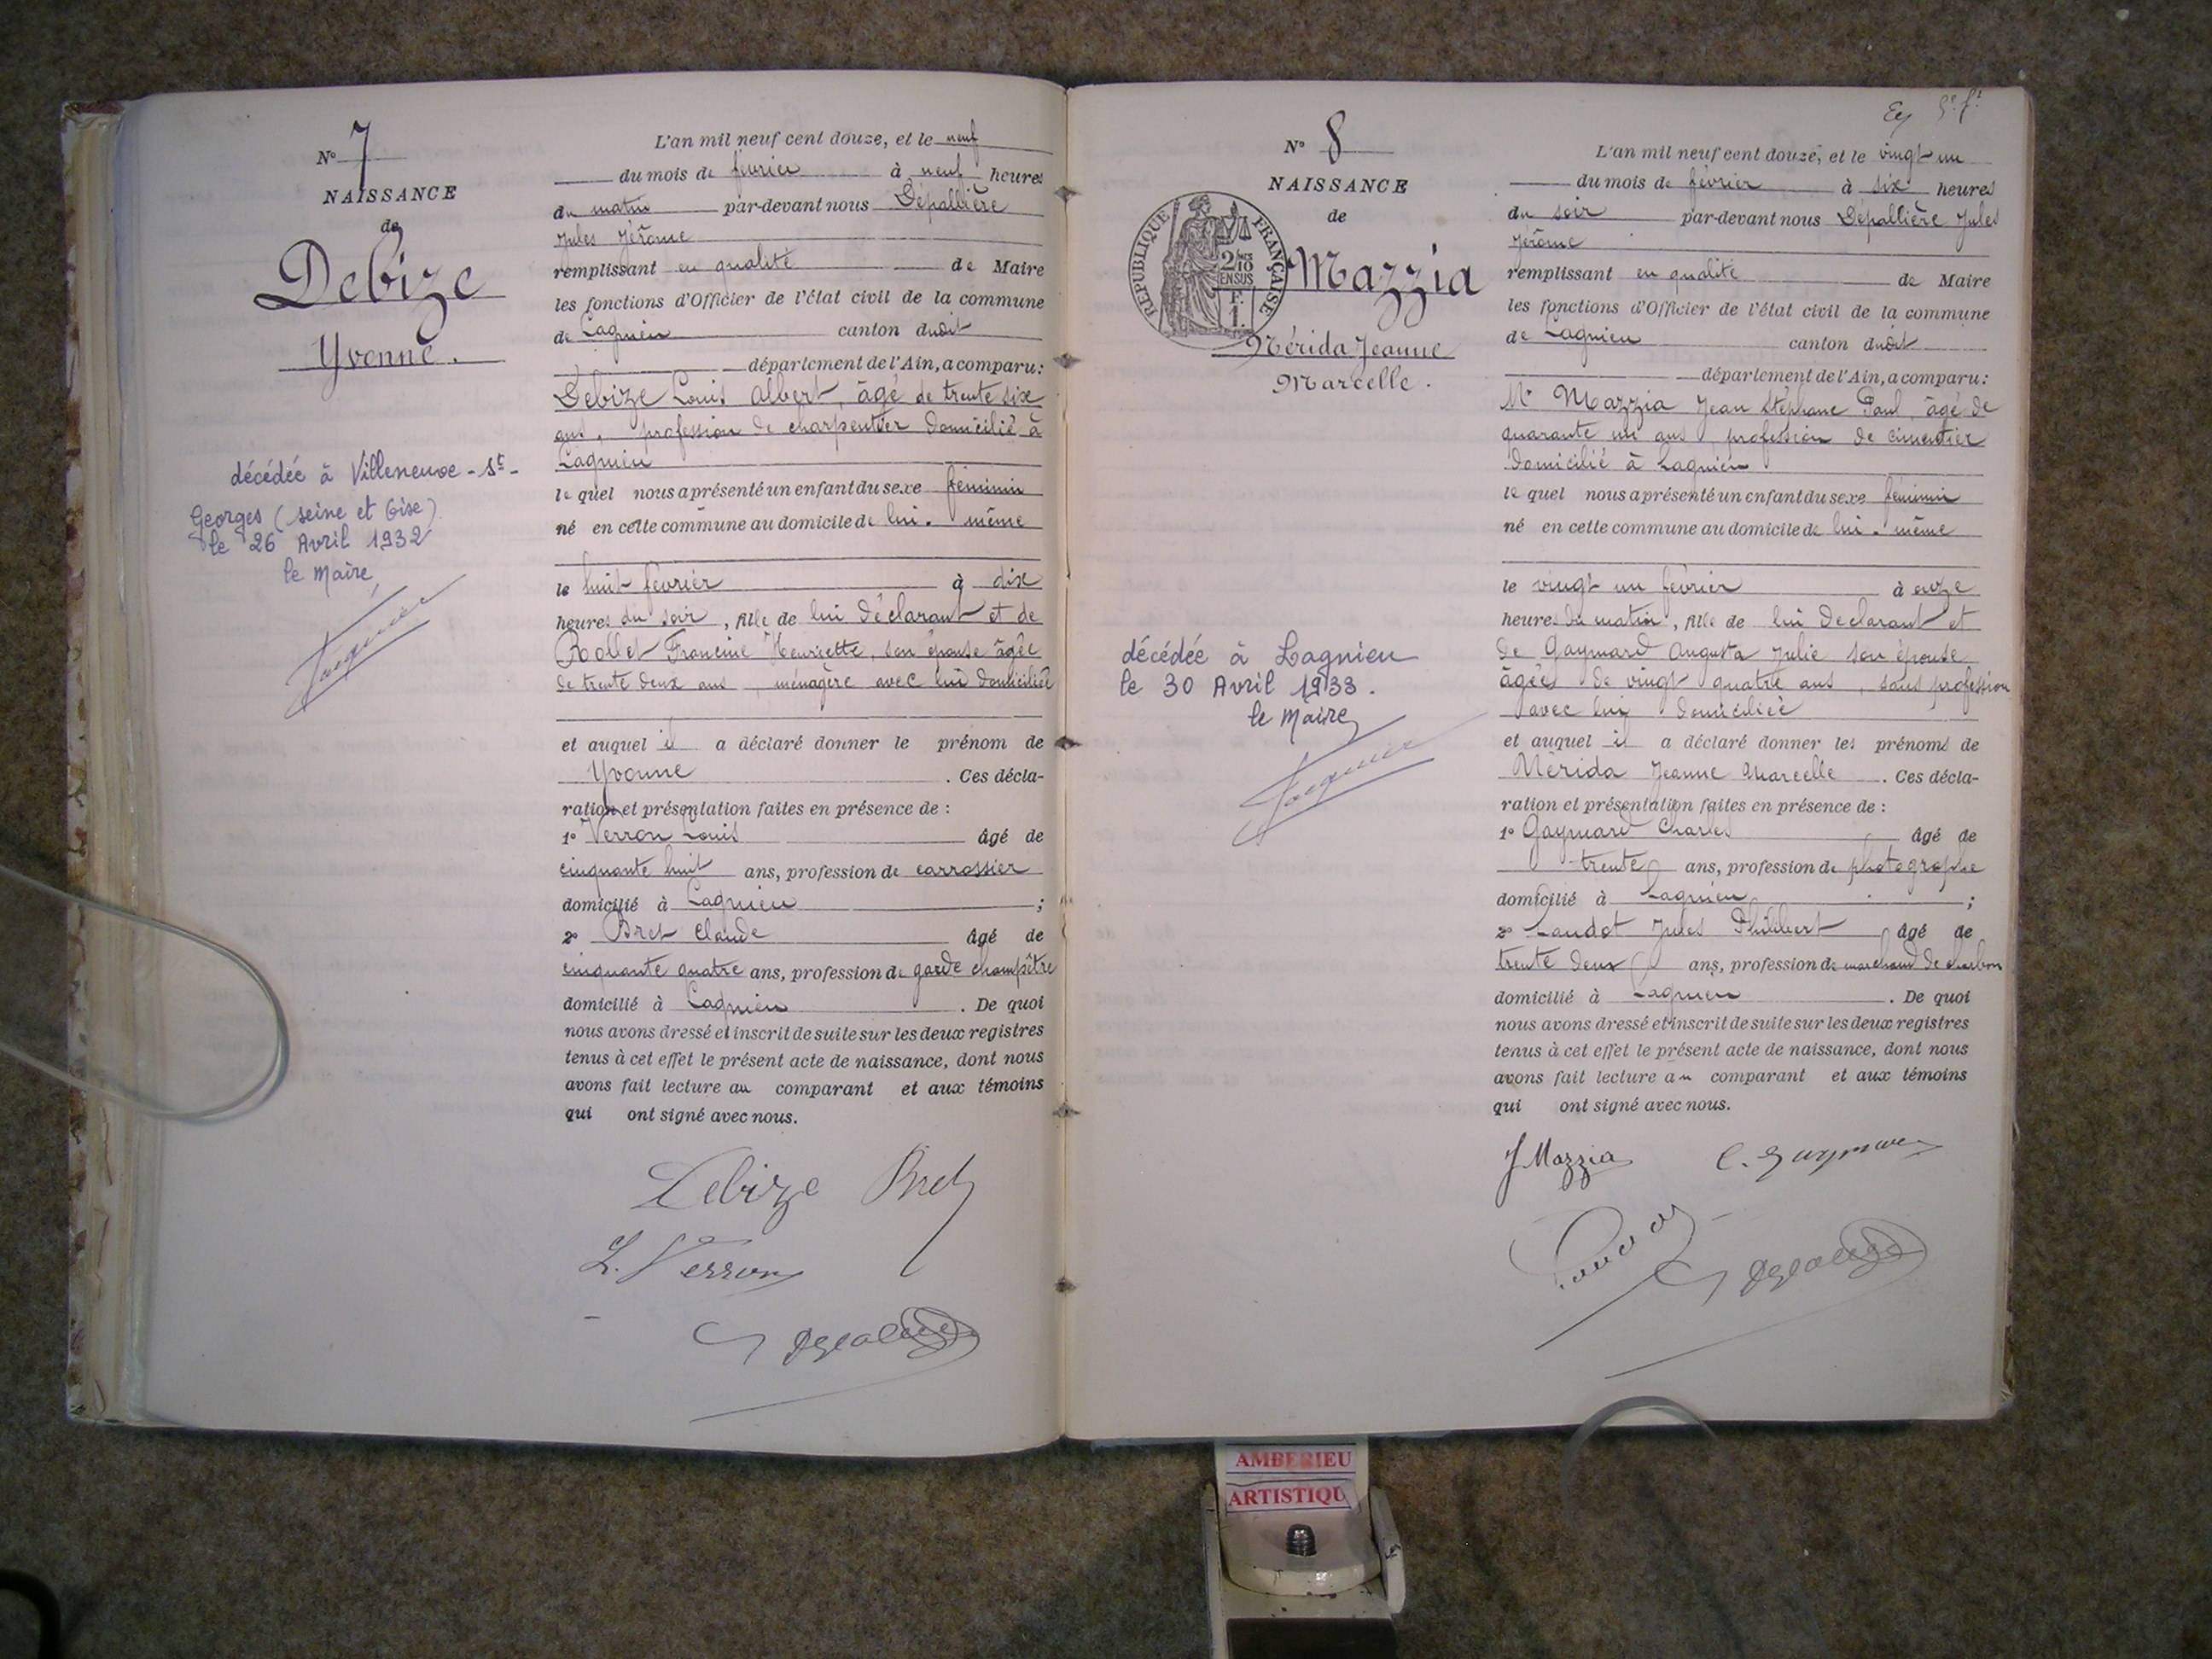 N° 7
NAISSANCE
de
Debize
Yvonne.
décédée à Villeneuve-St-
Georges (Seine et Oise)
le 26 Avril 1932
le Maire,
L'an mil neuf cent douze, et le neuf
du mois de février à neuf heures
du matin par-devant nous Dépallière
Jules Jérôme
remplissant en qualité de Maire
les fonctions d'Officier de l'état civil de la commune
de Lagnieu canton dudit
département de l'Ain, a comparu:
Debize Louis Albert, âgé de trente six
ans, profession de charpentier domicilié à
Lagnieu
le quel nous a présenté un enfant du sexe féminin
né en cette commune au domicile de lui-même
le huit février à dix
heures du soir, fille de lui déclarant et de
Rollet Francine Henriette, son épouse âgée
de trente deux ans, ménagère avec lui domiciliée
et auquel il a déclaré donner le prénom de
Yvonne. Ces décla-
ration et présentation faites en présence de :
1° Verron Louis âgé de
cinquante huit ans, profession de carrossier
domicilié à Lagnieu ;
2° Bret Claude âgé de
cinquante quatre ans, profession de garde champêtre
domicilié à Lagnieu. De quoi
nous avons dressé et inscrit de suite sur les deux registres
tenus à cet effet le présent acte de naissance, dont nous
avons fait lecture au comparant et aux témoins
qui ont signé avec nous.
Debize Bret
L. Verron
N° 8
NAISSANCE
de
RÉPUBLIQUE FRANÇAISE
2/10
EN SUS
F.
1.
Mazzia
Mérida Jeanne
Marcelle.
décédée à Lagnieu
le 30 Avril 1933.
le Maire,
L'an mil neuf cent douze, et le vingt un
du mois de février à six heures
du soir par-devant nous Dépallière Jules
Jérôme
remplissant en qualité de Maire
les fonctions d'Officier de l'état civil de la commune
de Lagnieu canton dudit
département de l'Ain, a comparu:
Mr Mazzia Jean Stéphane Paul, âgé de
quarante un ans, profession de cimentier
domicilié à Lagnieu
le quel nous a présenté un enfant du sexe féminin
né en cette commune au domicile de lui-même
le vingt un février à onze
heures du matin, fille de lui déclarant et
de Gaymard Augusta Julie son épouse
âgée de vingt quatre ans, sans profession
avec lui domiciliée
et auquel il a déclaré donner les prénoms de
Mérida Jeanne Marcelle. Ces décla-
ration et présentation faites en présence de :
1° Gaymard Charles âgé de
trente ans, profession de photographe
domicilié à Lagnieu ;
2° Landot Jules Philibert âgé de
trente deux ans, profession de marchand de charbon
domicilié à Lagnieu. De quoi
nous avons dressé et inscrit de suite sur les deux registres
tenus à cet effet le présent acte de naissance, dont nous
avons fait lecture au comparant et aux témoins
qui ont signé avec nous.
J Mazzia C. Gaymard
AMBERIEU
ARTISTIQU